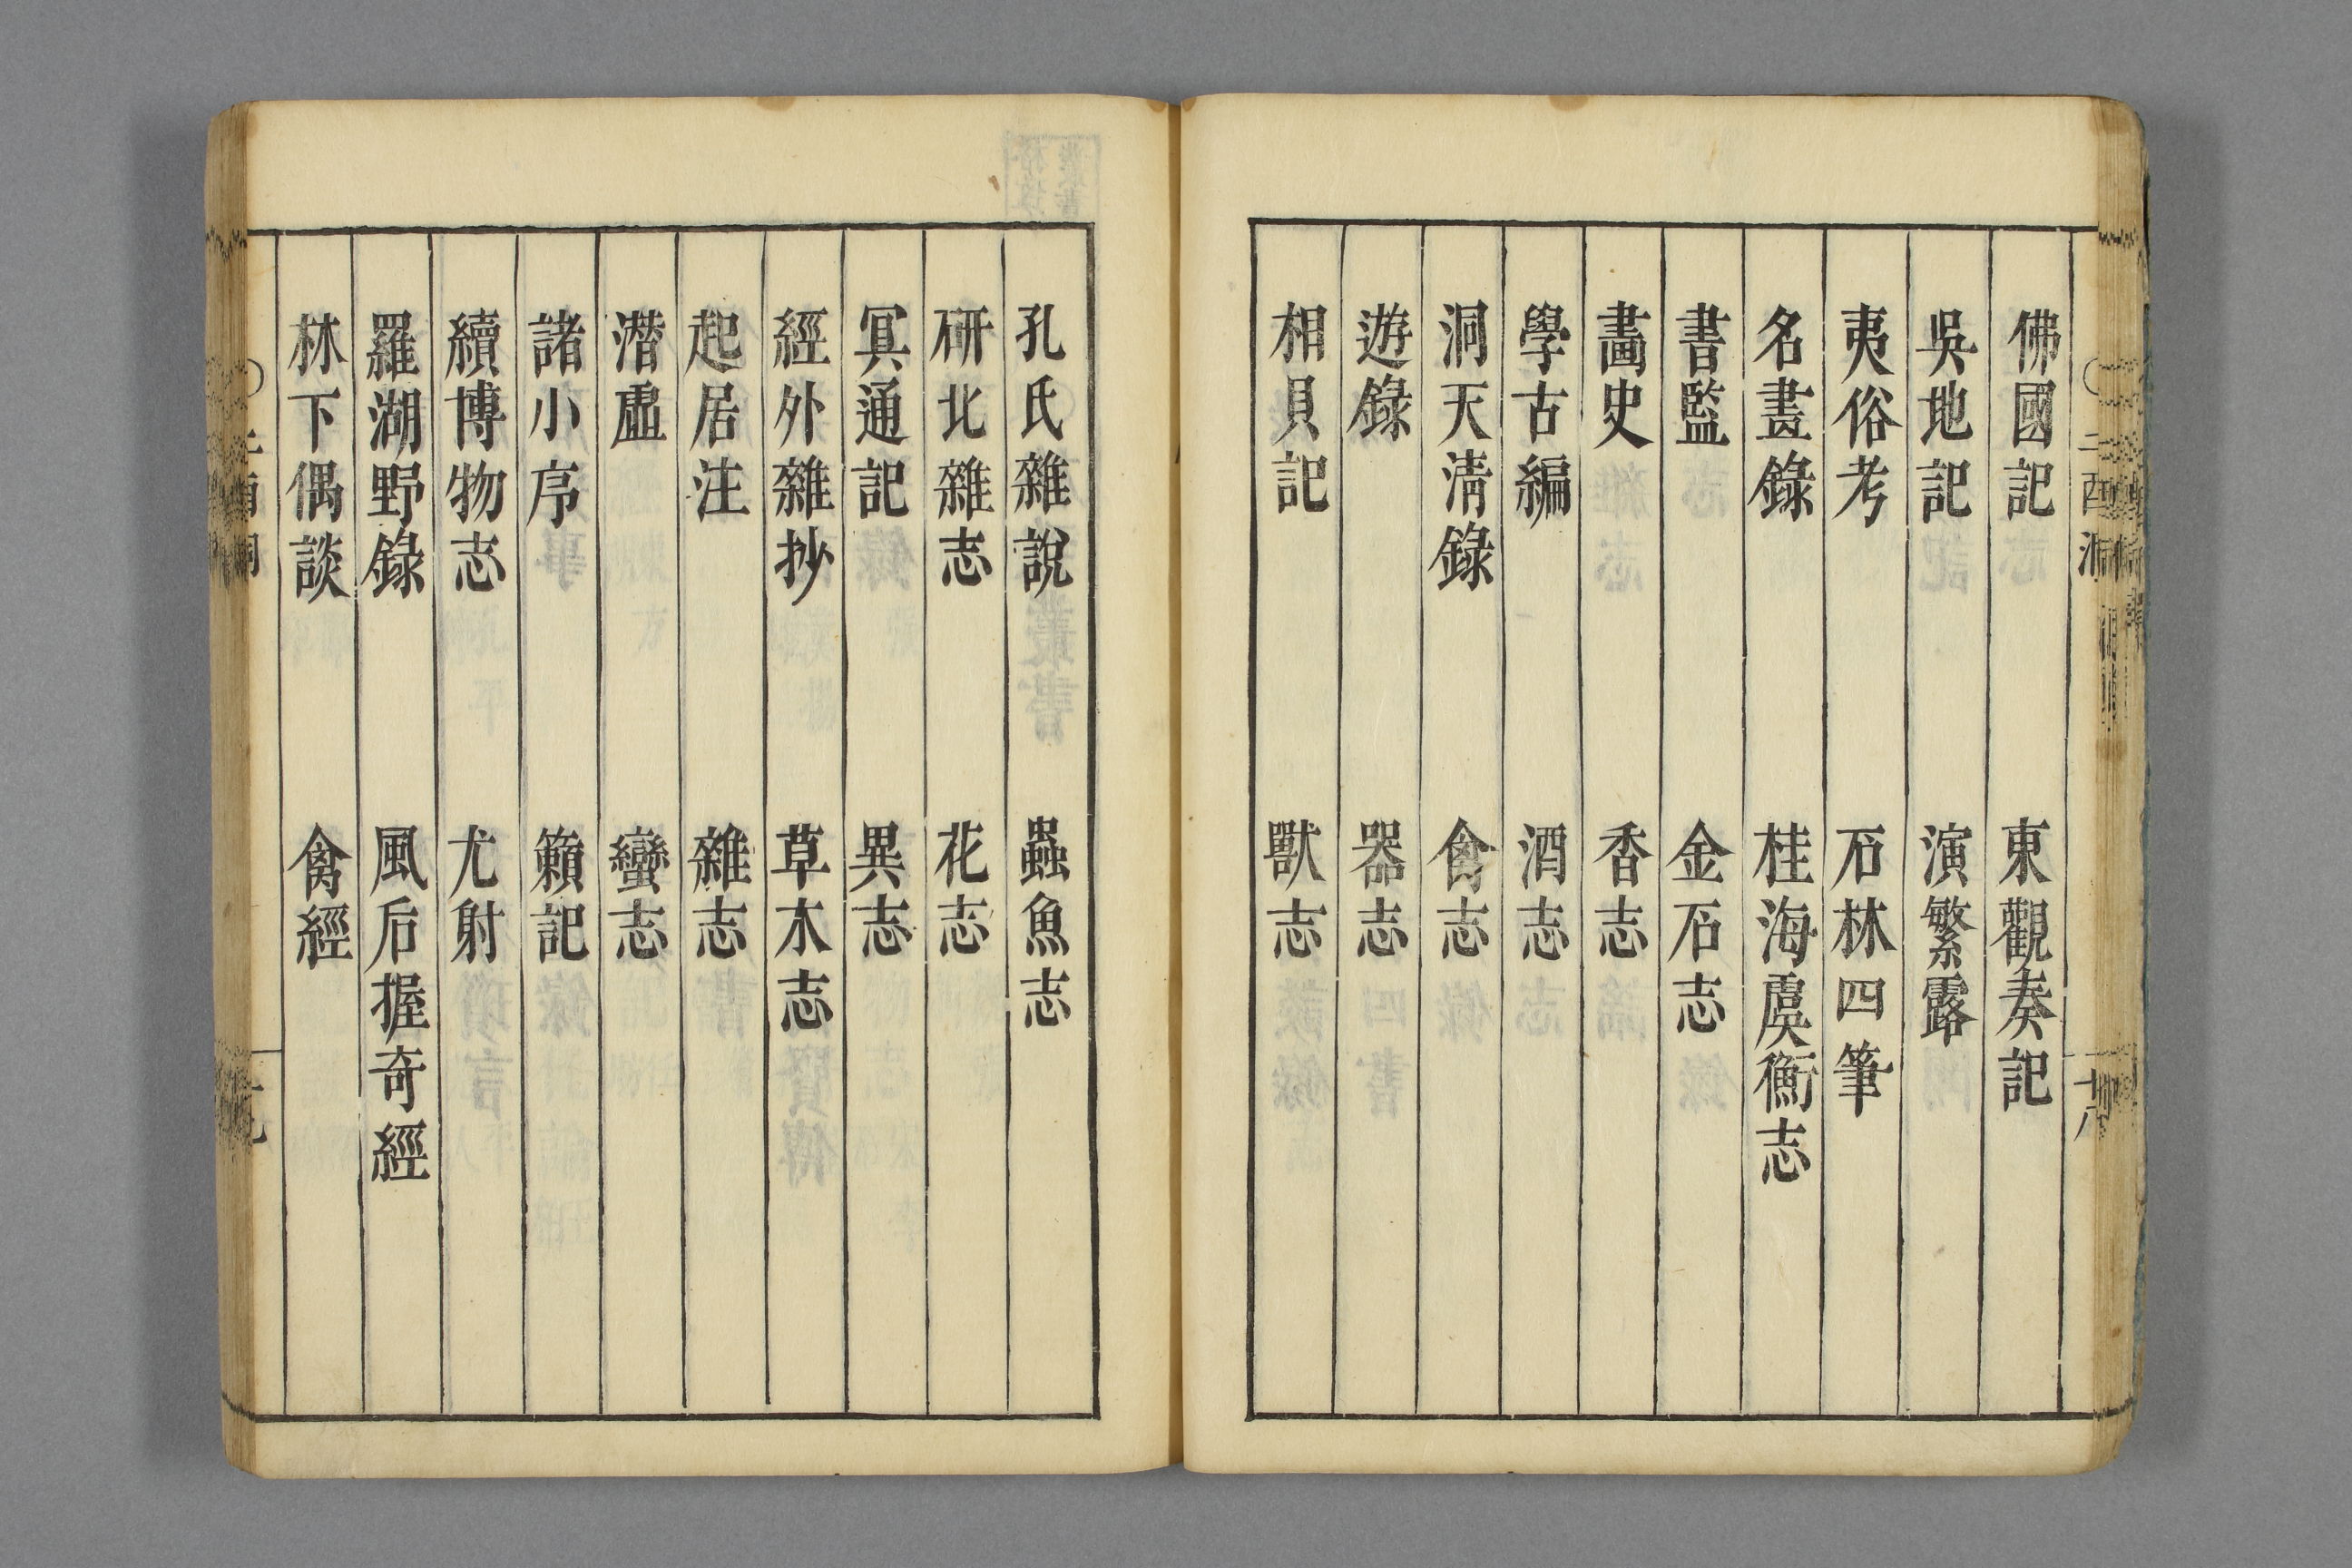 佛國記 東觀奏記
吳地記 演繁露
夷俗考 石林四筆
名畫錄 桂海虞衡志
書監 金石志
畵史 香志
學古編 酒志
洞天清錄 禽志
遊錄 器志
相貝記 獸志
二酉洞
孔氏雜說 蟲魚志
硏北雜志 花志
冥通記 異志
經外雜抄 草木志
起居注 雜志
潛虛 蠻志
諸小序 籟記
續博物志 尤射
羅湖野錄 風后握奇經
林下偶談 禽經